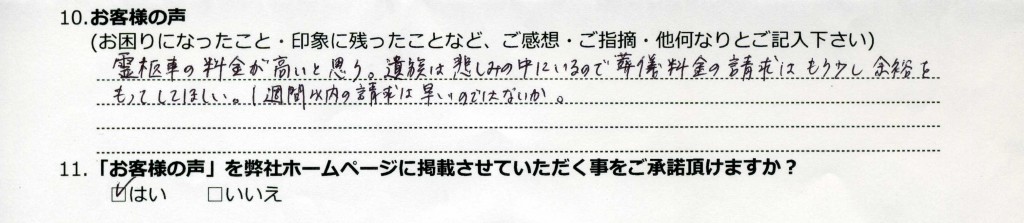 10.お客様の声
(お困りになったこと・印象に残ったことなど、ご感想・ご指摘・他何なりとご記入下さい)
霊柩車の料金が高いと思う。遺族は悲しみの中にいるので葬儀料金の請求はもう少し余裕を
もってしてほしい。1週間以内の請求は早いのではないか。
11.「お客様の声」を弊社ホームページに掲載させていただく事をご承諾頂けますか？
☑はい □いいえ